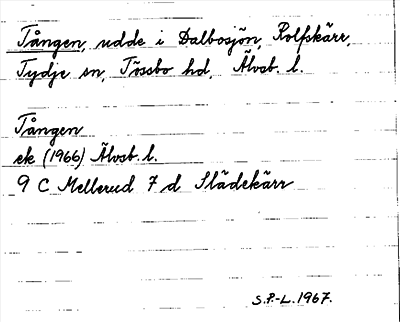 Tången, udde i Dalbosjön, Rolfskärr,
Tydje sn, Tössbo hd, Älvsb. l.
Tången
ek (1966) Älvsb. l.
9 C Mellerud 7 d Slädekärr
S.P.-L. 1967.